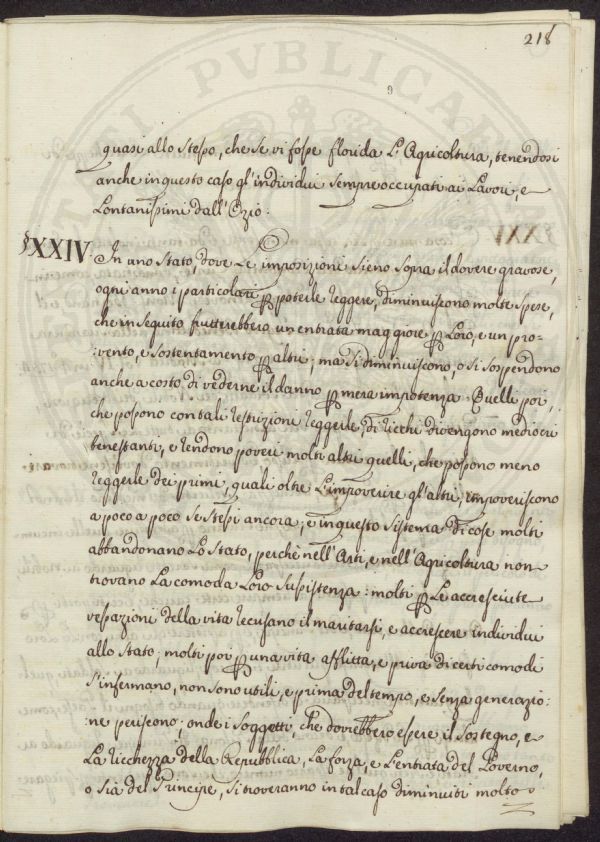 218
9
quasi allo stesso, che se vi fosse florida L'Agricoltura, tenendosi
anche in questo caso gl'individui sempre occupati ai Lavori, e
Lontanissimi dall'Ozio.
§XXIV. In uno Stato, dove Le imposizioni sieno sopra il dovere gravose,
ogni anno i particolari ꝑ poterle reggere, diminuiscono molte spese,
che in seguito frutterebbero un entrata maggiore ꝑ Loro, e un pro-
:vento, e sostentamento ꝑ altri; ma si diminuiscono, o si sospendono
anche a costo di vederne il danno ꝑ mera impotenza. Quelli poi,
che possono con tali restrizioni reggerle, di ricchi divengono mediocri
benestanti, e rendono poveri molti altri quelli, che possono meno
reggerle dei primi, quali oltre L'impoverire gl'altri, impoveriscono
a poco a poco se stessi ancora; e in questo sistema di cose molti
abbandonano Lo Stato, perchè nell'Arti, e nell'Agricoltura non
trovano La comoda Loro susistenza: molti ꝑ Le accresciute
vessazioni della vita recusano il maritarsi, e accrescere individui
allo Stato; molti poi ꝑ una vita afflitta, e priva di certi comodi
s'infermano, non sono utili, e prima del tempo, e senza generazio:
:ne periscono; onde i soggetti, che dovrebbero essere il sostegno, e
La ricchezza della Repubblica, La forza, e L'entrata del Governo,
o sia del Principe, si troveranno in tal caso diminuiti molto
PUBLICAE